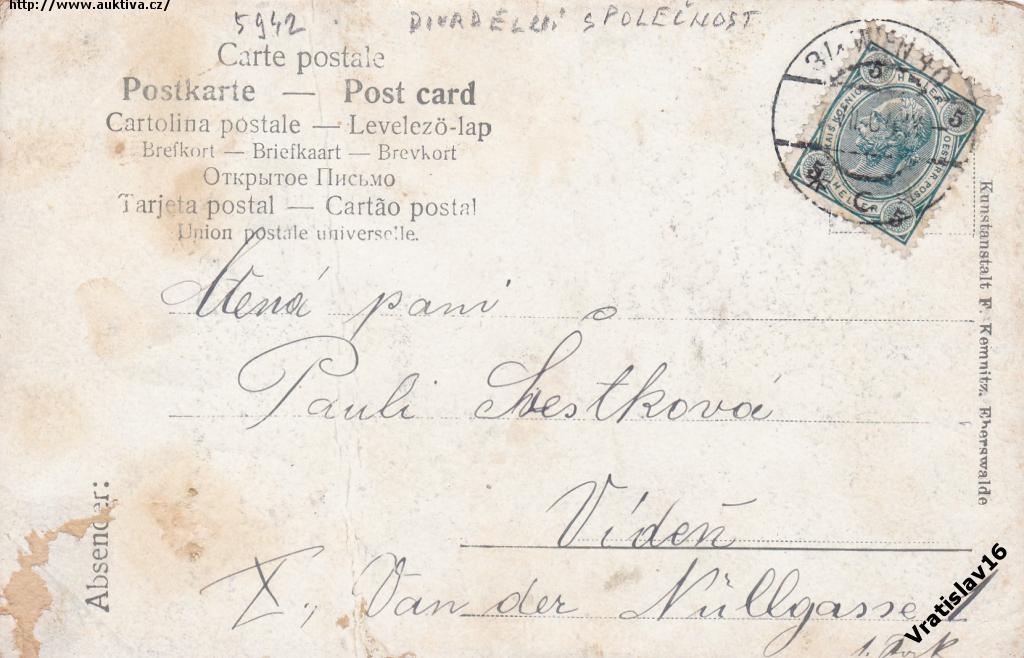 http://www.auktiva.cz/
5942 DIVADELNÍ SPOLEČNOST
Carte postale
Postkarte — Post card
Cartolina postale — Levelezö-lap
Brefkort — Briefkaart — Brevkort
Открытое Письмо
Tarjeta postal — Cartão postal
Union postale universelle.
WIEN
5 HELLER 5
5 HELLER 5
Ctěná paní
Pauli Švestková
Vídeň
X., Van der Nüllgasse
Absender:
Kunstanstalt F. Kemnitz, Eberswalde
Vratislav16